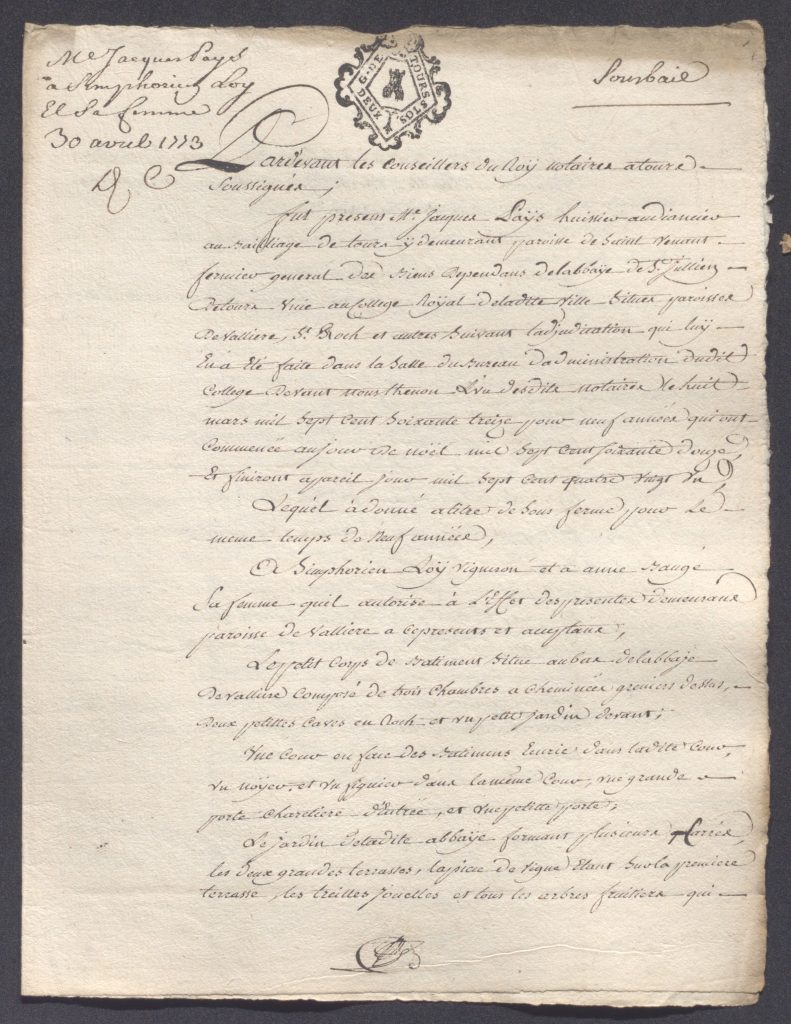 Me Jacques Pays
a Simphorien Loy
Et Sa femme
30 avril 1773
G. DE TOURS
DEUX SOLS
Sousbail
Pardevant les Conseillers du Roy notaires a tours
Soussignés;
fut present Me. Jacques Pays huissier audiancier
au Bailliage de tours y demeurant paroisse de Saint Venant
fermier general des Biens Dependans delabbaye de St. Jullien
Detours Unie au College Royal deladite Ville Situés paroisses
De Valliere, St. Roch et autres Suivant ladjudication qui luy
En a Eté faite dans la Salle du Bureau Dadministration dudit
College Devant nous thenon L'un desdits notaires le huit
mars mil Sept Cent Soixante treize pour neuf années qui ont
Commencé au jour De noël mil Sept Cent soixante douze,
Et finiront apareil jour mil Sept Cent quatre Vingt Un;
Lequel à donné atitre de Sous ferme pour Le
meme temps de Neuf années,
A Simphorien Loÿ Vigneron et a anne Baugé
Sa femme quil autorise à L'Effet des presentes demeurans
paroisse de Valliere a Cepresents et acceptans,
Le petit Corps de Batiment Situé aubas delabbaye
De Valliere Composé de trois Chambres a Cheminées greniers dessus,
Deux petittes Caves en Roch et Un petit Jardin devant;
Une Cour en face des Batimens Encrie dans ladite Cour,
Un noyer, et Un figuier dans lamême Cour, Une grande
porte Charetiere d'Entrée, et Une petitte porte;
Le jardin deladite abbaye formant plusieurs Carrés,
les deux grandes terrasses, la piece de Vigne Etant Sur la premiere
terrasse, les treilles Jouelles et tous les arbres fruitiers qui